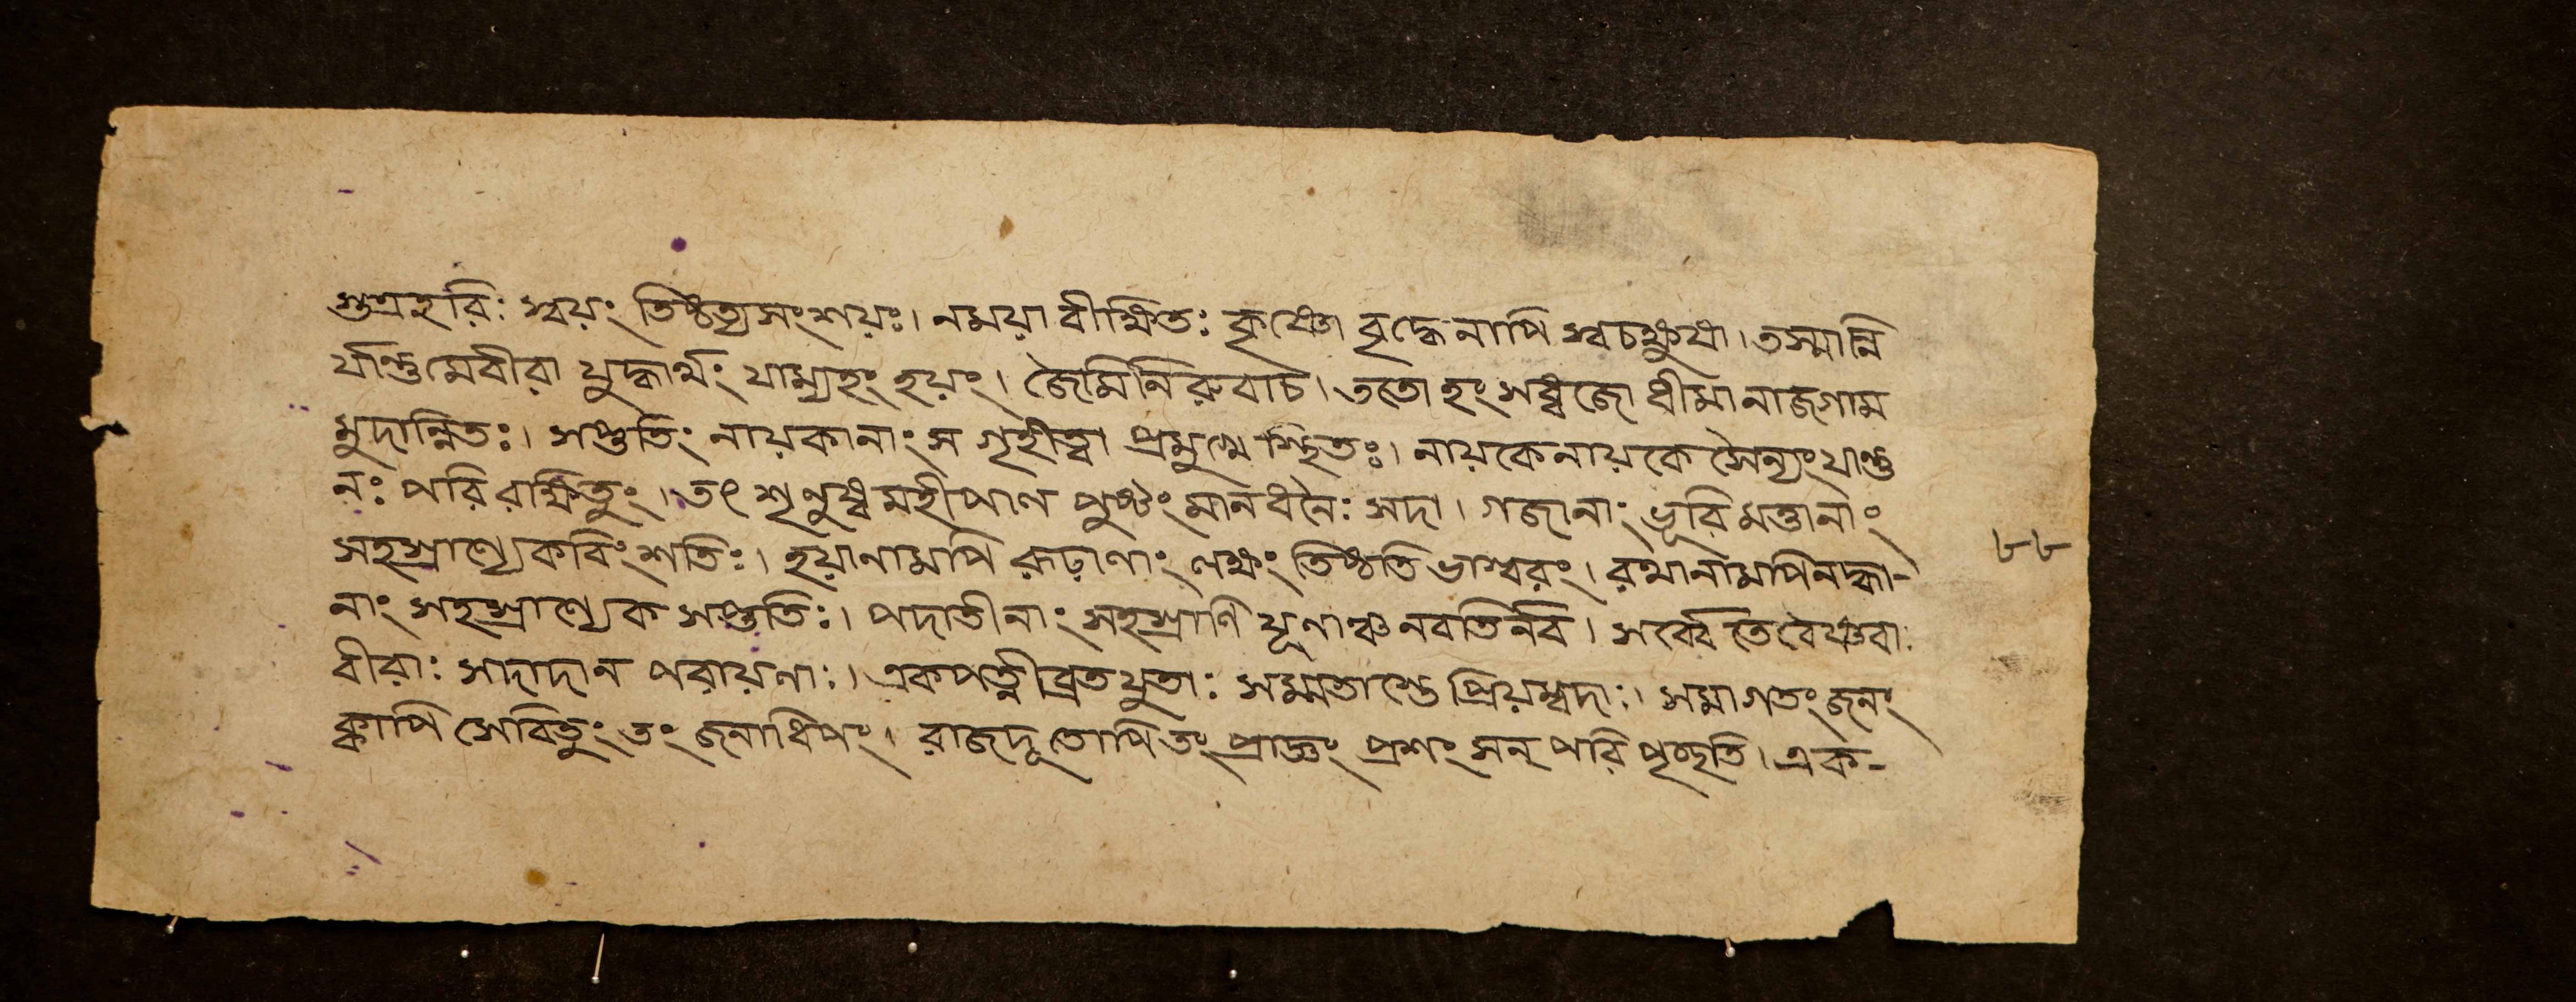 স্তত্রহরিঃ স্বয়ং তিষ্ঠত্যসংশয়ঃ। নময়া বীক্ষিতঃ কৃষ্ণো বৃদ্ধেনাপি স্বচক্ষুষা। তস্মান্নি
র্যান্তুমেবীরা যুদ্ধার্থং যাম্যহং হয়ং। জৈমিনিরুবাচ। ততো হংসধ্বজো ধীমানাজগাম
মুদান্বিতঃ। সপ্ততিং নায়কানাং স গৃহীত্বা প্রমুখে স্থিতঃ। নায়কেনায়কে সৈন্যং যাব্দ
নঃ পরিরক্ষিতুং। তৎ শৃনুষ্ব মহীপাল পুষ্টং মানধনৈঃ সদা। গজানাং ভূরি মত্তানাং
সহস্রাণ্যেকবিংশতিঃ। হয়ানামপি রূঢ়াণাং লক্ষং তিষ্ঠতি ভাস্বরং। রথানামপিনদ্ধা-
নাং সহস্রাণ্যেক সপ্ততিঃ। পদাতীনাং সহস্রাণি যূনাঞ্চ নবতির্নব। সর্ব্বে তেবৈষ্ণবা
বীরাঃ সাদাদান পরায়ণাঃ। একপত্নীব্রতযুতাঃ সম্মতাস্তে প্রিয়ম্বদাঃ। সমাগতং জনং
ক্কাপি সেবিতুং তং জনাধিপং। রাজদূতোপি তং প্রাজ্ঞং প্রশংসন্ পরিপৃচ্ছতি। এক-
৮৮